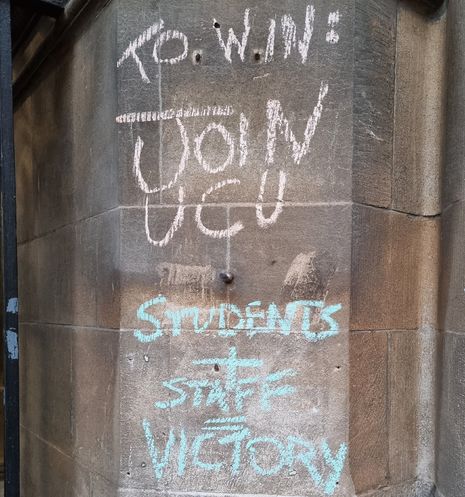 TO WIN:
JOIN
UCU
STUDENTS
+
STAFF
=
VICTORY